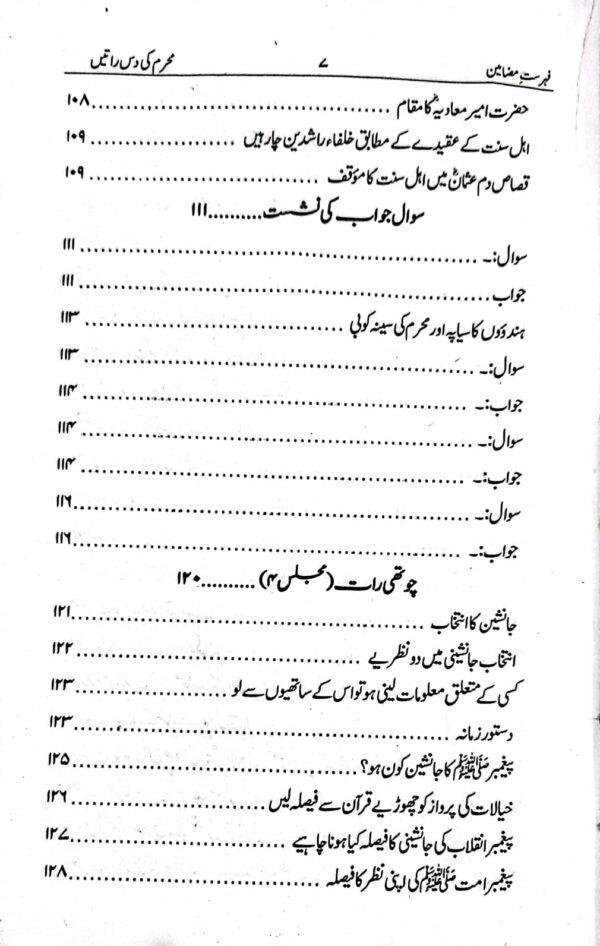 فہرست مضامین ۷ محرم کی دس راتیں
حضرت امیر معاویہؓ کا مقام ........................ ۱۰۸
اہل سنت کے عقیدے کے مطابق خلفاء راشدین چار ہیں ................ ۱۰۹
قصاص دم عثمانؓ میں اہل سنت کا مؤقف ........................ ۱۰۹
سوال جواب کی نشست..........۱۱۱
سوال:۔ ........................ ۱۱۱
جواب........................ ۱۱۱
ہندوؤں کا سیاپہ اور محرم کی سینہ کوبی ........................ ۱۱۳
سوال:۔ ........................ ۱۱۳
جواب:۔ ........................ ۱۱۴
سوال:۔ ........................ ۱۱۴
جواب:۔ ........................ ۱۱۴
سوال:۔ ........................ ۱۱۶
جواب:۔ ........................ ۱۱۶
چوتھی رات (مجلس ۴) ..........۱۲۰
جانشین کا انتخاب ........................ ۱۲۱
انتخاب جانشینی میں دو نظریے ........................ ۱۲۲
کسی کے متعلق معلومات لینی ہو تو اس کے ساتھیوں سے لو ................ ۱۲۳
دستور زمانہ ........................ ۱۲۳
پیغمبر ﷺ کا جانشین کون ہو؟ ........................ ۱۲۵
خیالات کی پرواز کو چھوڑیے قرآن سے فیصلہ لیں ................ ۱۲۶
پیغمبر انقلاب کی جانشینی کا فیصلہ کیا ہونا چاہیے ................ ۱۲۷
پیغمبر امت ﷺ کی اپنی نظر کا فیصلہ ........................ ۱۲۸